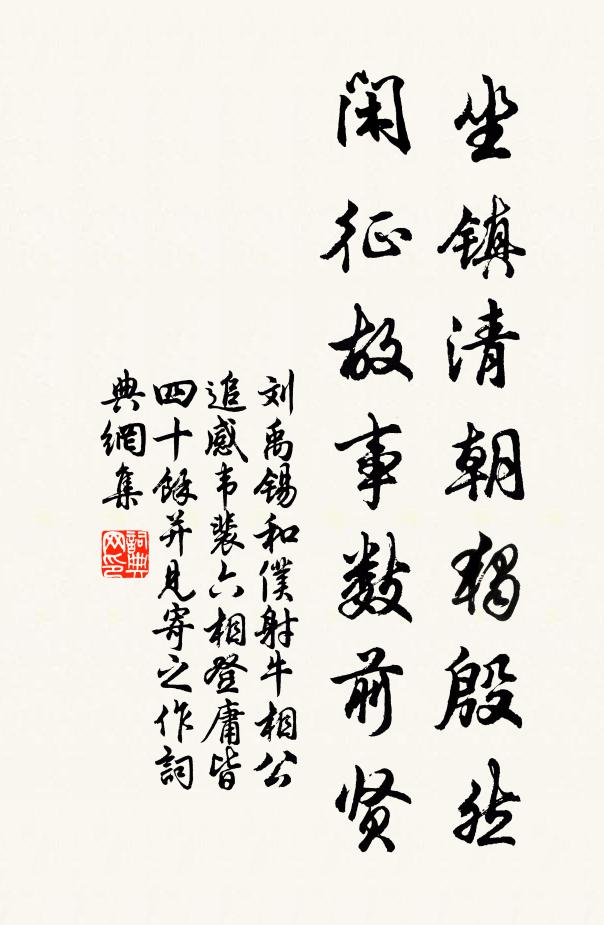 坐镇清朝独殷然
闲征故事数前贤
刘禹锡和僕射牛相公
追感韦裴六相登庸皆
四十馀并见寄之作詞
典網集
詞典网印